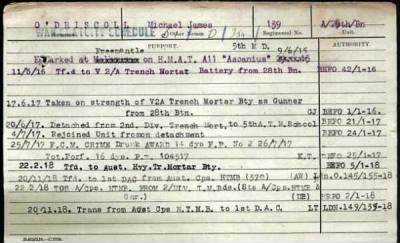 O'DRISCOLL Michael James 139 A/28th/Bn
SCHEDULE D
Fremantle 5th M D.
PURPORT. AUTHORITY.
Embarked at on H.M.A.T. A11 "Ascanius" 9/6/15
11/8/16 Tfd.to V 2/A Trench Mortar Battery from 28th Bn. BEPO 42/1-16.
17.6.17 Taken on strength of V2A Trench Mortar Bty as Gunner
from 28th Bn. GJ BEPO 1/1-16.
20/6/17. Detached from 2nd. Div. Trench Mort. to 5thA.T.M.School BEPO 21/1-17
4/7/17. Rejoined Unit from detachment BEPO 24/1-17.
25/7/17 F.C.M. CRIME Drunk AWARD 14 dys F.P. No 2 26/7/17
Tot.Forf. 16 dys. P. 104517 K.T. BEPO 25/1-17.
22.2.18 Tfd. to Aust. Hvy.Tr.Mortar Bty. BEPO 5/1-18
20/11/18 Tfd. to 1st DAC from Aust. Cps. HTMB (570) (AW) Ldn.O.145/155-18
22/2/18 TOS A/Cps. HTMB. FROM 2/DIV. T.M.Bde.(Sts A/Cps.HTMB as
Gnr.) (DB) BEPO 2/1-18
20.11.18. Trans from Aust Cps H.T.M.B. to 1st D.A.C. LT LDN.149/155-18